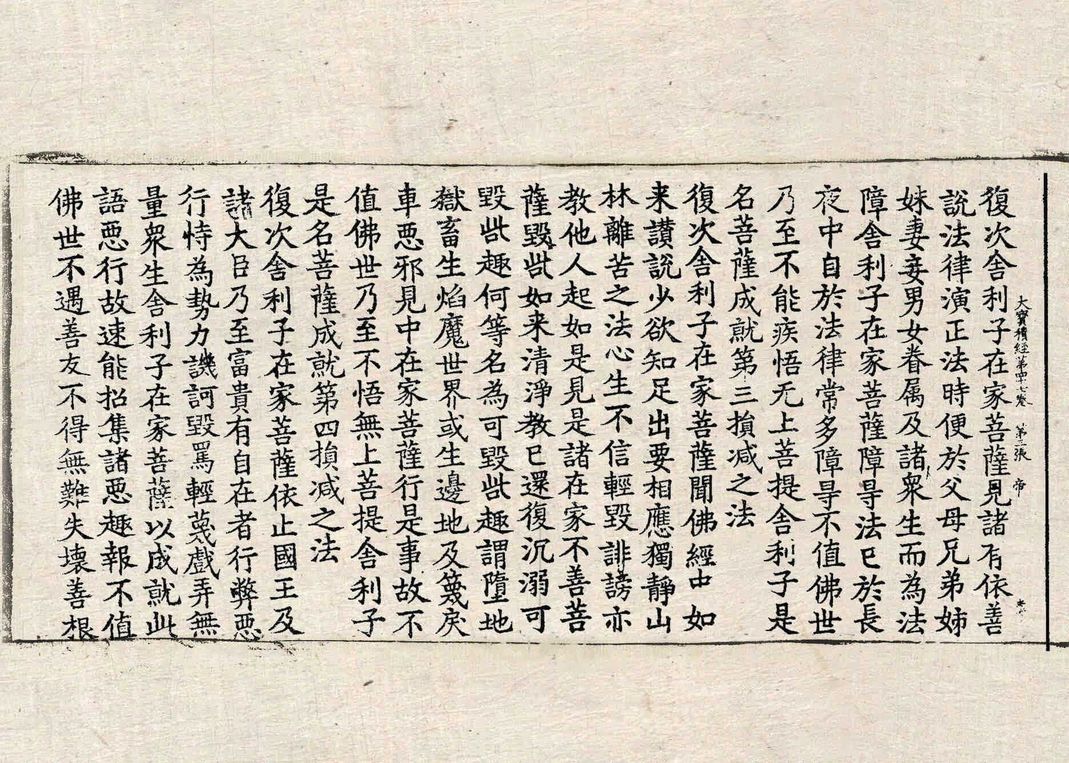 大寶積經第四十七卷 第三張 帝
復次舍利子在家菩薩見諸有依善
說法律演正法時便於父母兄弟姉
妹妻妾男女眷属及諸衆生而為法
障舍利子在家菩薩障㝵法已於長
夜中自於法律常多障㝵不值佛世
乃至不能疾悟无上菩提舍利子是
名菩薩成就第三損减之法
復次舍利子在家菩薩聞佛經中如
来讃說少欲知足出要相應獨静山
林離苦之法心生不信輕毀誹謗亦
教他人起如是見是諸在家不善菩
薩毀呰如来清淨教已還復沉溺可
毀呰趣何等名為可毀呰趣謂墮地
獄畜生焰魔世界或生邊地及篾戾
車悪邪見中在家菩薩行是事故不
值佛世乃至不悟無上菩提舍利子
是名菩薩成就第四損减之法
復次舍利子在家菩薩依止國王及
諸大臣乃至富貴有自在者行弊悪
行恃為勢力譏訶毀罵輕蔑戲弄無
量衆生舍利子在家菩薩以成就此
語悪行故速能招集諸悪趣報不值
佛世不遇善友不得無難失壞善根